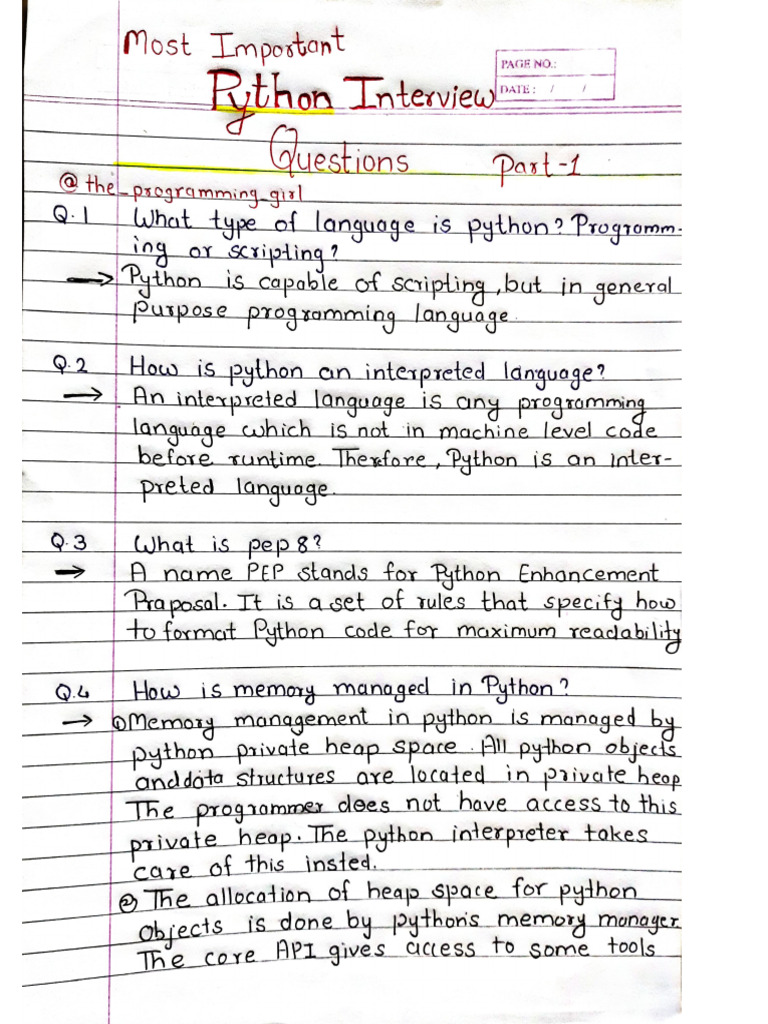 Most Important
PAGE NO.:
Python Interview
DATE: / /
Questions Part-1
@the_programming_girl
Q.1 What type of language is python? Programm-
ing or scripting?
→ Python is capable of scripting, but in general
purpose programming language.
Q.2 How is python an interpreted language?
→ An interpreted language is any programming
language which is not in machine level code
before runtime. Therefore, Python is an inter-
preted language.
Q.3 What is pep 8?
→ A name PEP stands for Python Enhancement
Praposal. It is a set of rules that specify how
to format Python code for maximum readability
Q.4 How is memory managed in Python?
→ ① Memory management in python is managed by
python private heap space. All python objects
and data structures are located in private heap
The programmer does not have access to this
private heap. The python interpreter takes
care of this insted.
② The allocation of heap space for python
objects is done by python's memory manager.
The core API gives access to some tools